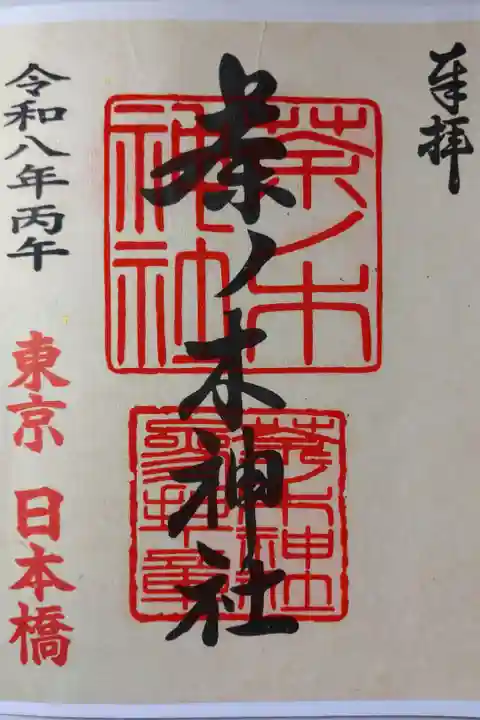 奉拝
茶ノ木神社
茶ノ木
神社
茶ノ木神社
参拝章
令和八年丙午
東京 日本橋